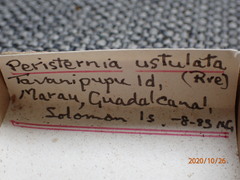 Peristernia ustulata
Tavanipupu Id, (Rve)
Marau, Guadalcanal,
Solomon Is. -8-83
2020/10/26